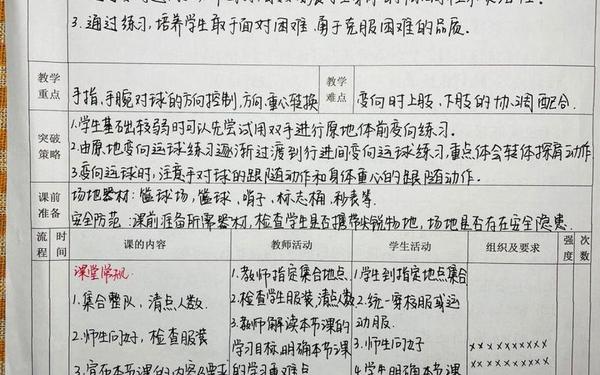 3.通过练习,培养学生敢于面对困难、勇于克服困难的品质。
教学重点
手指、手腕对球的方向控制,方向、重心转换
教学难点
变向时上肢、下肢的协调配合.
突破策略
1.学生基础较弱时可以先尝试用双手进行原地体前变向练习。
2.由原地变向运球练习逐渐过渡到行进间变向运球练习,重点体会转体探肩动作
3.变向运球时,注意手对球的跟随动作和身体重心的跟随动作.
课前准备
场地器材:篮球场,篮球、哨子、标志桶、秒表等.
安全防范:课前准备所需器材,检查学生是否携带尖锐物地,场地是否存在安全隐患.
流程
时间
课的内容
教师活动
学生活动
组织及要求
强度
次数
课堂常规
1.集合整队,清点人数.
2.师生问好,检查服装
3.宣布本节课的内容及要求
1.教师指定集合地点
2.检查学生服装,清点人数
3.教师解读本节课的
学习目标,明确本节课
的学习重难点
1.学生到指定地点集合
2.统一穿校服或运
动服.
3.师生问好
4.学生明确本节课
×××××××××
×××××××××